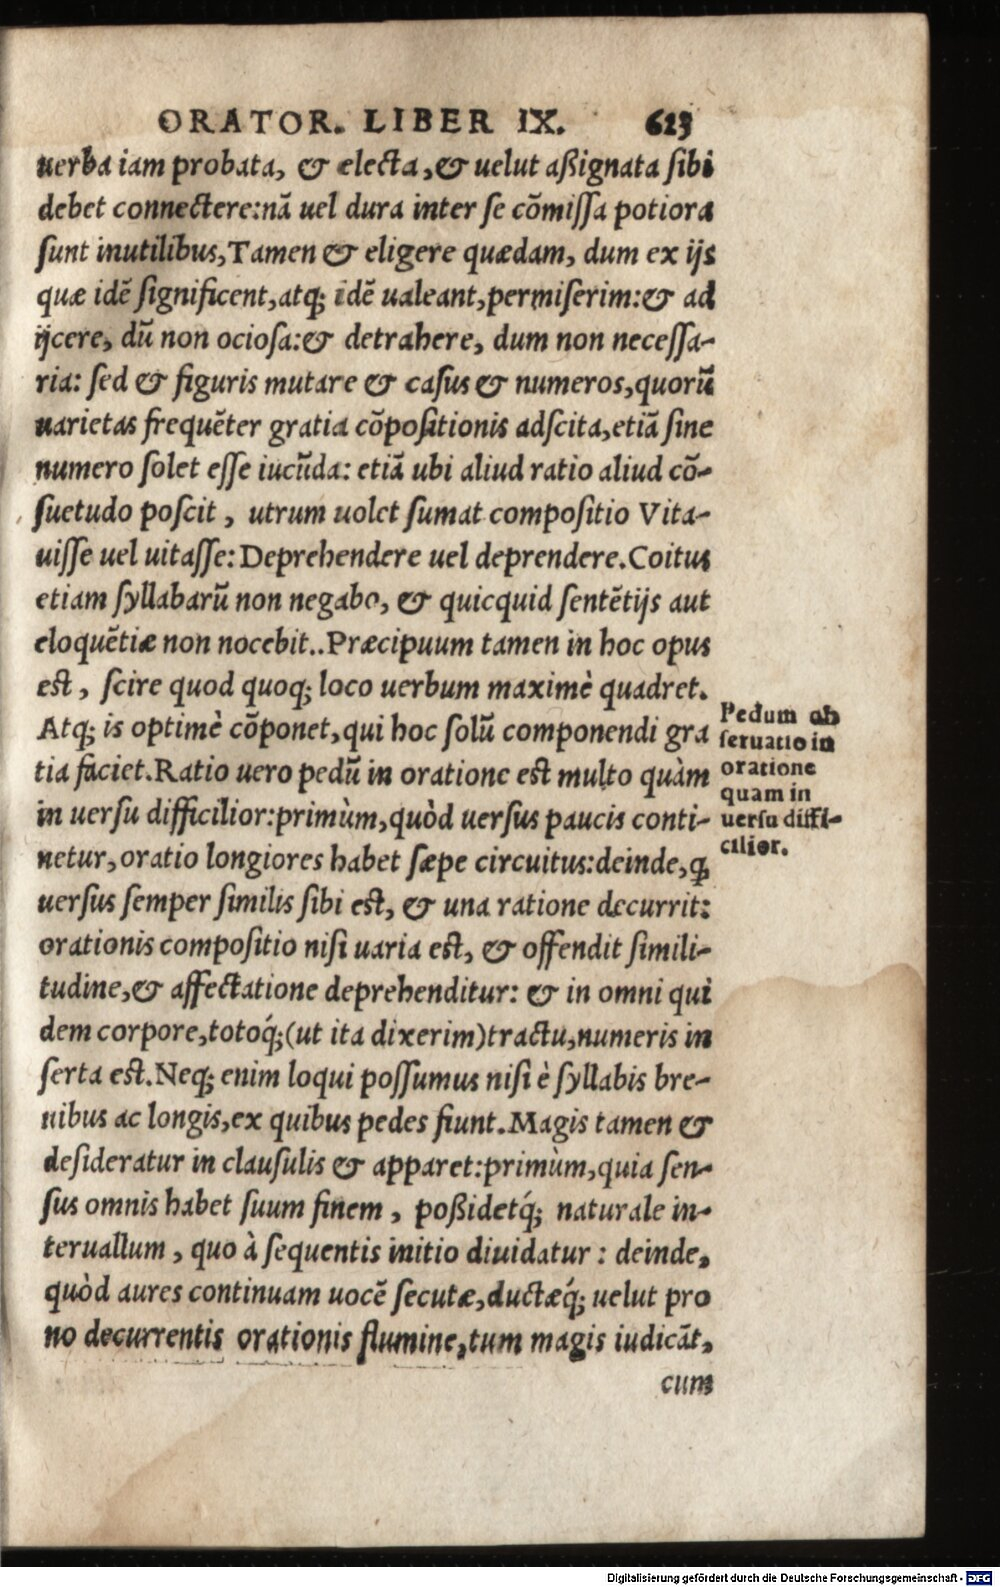 ORATOR. LIBER IX. 613
uerba iam probata, & electa, & uelut aßignata sibi
debet connectere: nā uel dura inter se cōmissa potiora
sunt inutilibus, Tamen & eligere quædam, dum ex ijs
quæ idē significent, atq; idē ualeant, permiserim: & ad
ijcere, dū non ociosa: & detrahere, dum non necessa-
ria: sed & figuris mutare & casus & numeros, quorū
uarietas frequēter gratia cōpositionis adscita, etiā sine
numero solet esse iucūda: etiā ubi aliud ratio aliud cō-
suetudo poscit, utrum uolet sumat compositio Vita-
uisse uel uitasse: Deprehendere uel deprendere. Coitus
etiam syllabarū non negabo, & quicquid sentētijs aut
eloquētiæ non nocebit.. Præcipuum tamen in hoc opus
est, scire quod quoq; loco uerbum maximè quadret.
Atq; is optimè cōponet, qui hoc solū componendi gra
tia faciet. Ratio uero pedū in oratione est multo quàm
in uersu difficilior: primùm, quòd uersus paucis conti-
netur, oratio longiores habet sæpe circuitus: deinde, ꝙ
uersus semper similis sibi est, & una ratione decurrit:
orationis compositio nisi uaria est, & offendit simili-
tudine, & affectatione deprehenditur: & in omni qui
dem corpore, totoq́; (ut ita dixerim) tractu, numeris in
serta est. Neq; enim loqui possumus nisi è syllabis bre-
uibus ac longis, ex quibus pedes fiunt. Magis tamen &
desideratur in clausulis & apparet: primùm, quia sen-
sus omnis habet suum finem, poßidetq́; naturale in-
teruallum, quo à sequentis initio diuidatur: deinde,
quòd aures continuam uocē secutæ, ductæq́; uelut pro
no decurrentis orationis flumine, tum magis iudicāt,
cum
Pedum ob
seruatio in
oratione
quam in
uersu diffi-
cilior.
Digitalisierung gefördert durch die Deutsche Forschungsgemeinschaft - DFG